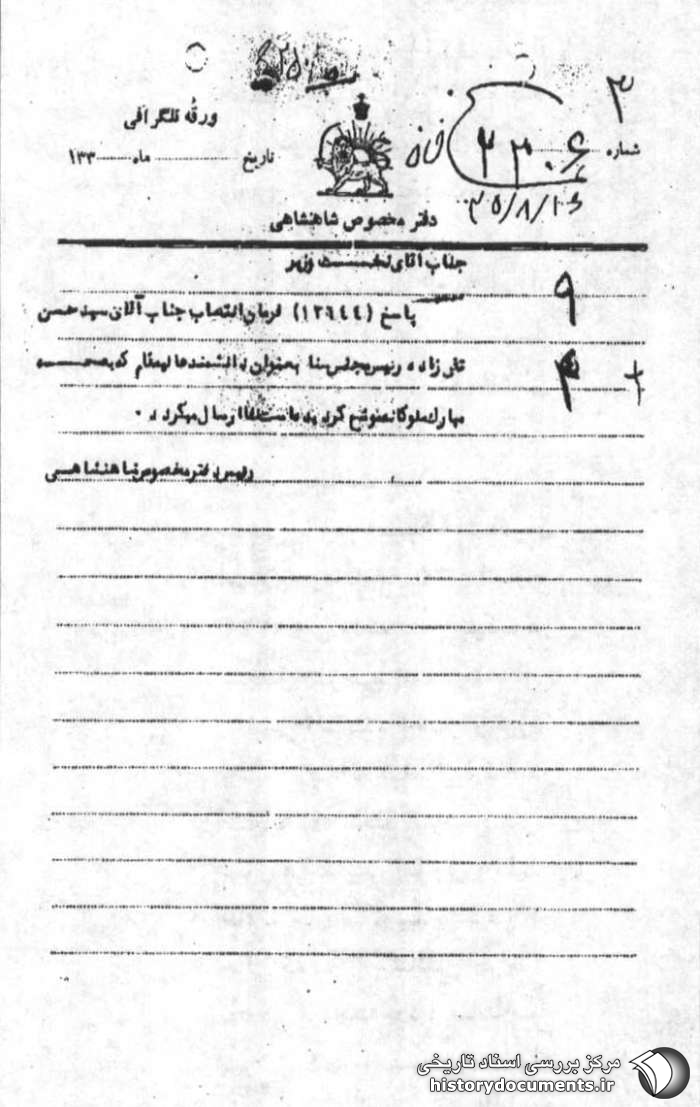 ۳
ورقه تلگرافی
شماره ۲۳۰۶
تاریخ ماه ۱۳۳
۳۵/۸/۱۶
دفتر مخصوص شاهنشاهی
جناب آقای نخست وزیر
۹
پاسخ (۱۳۶۴۴) فرمان انتصاب جناب آقای سید حسن
تقی زاده رئیس مجلس سنا بعنوان دانشمند عالیمقام که بصحه
مبارک ملوکانه توشیح گردیده است لفا ارسال میگردد.
رئیس دفتر مخصوص شاهنشاهی
مرکز بررسی اسناد تاریخی
historydocuments.ir